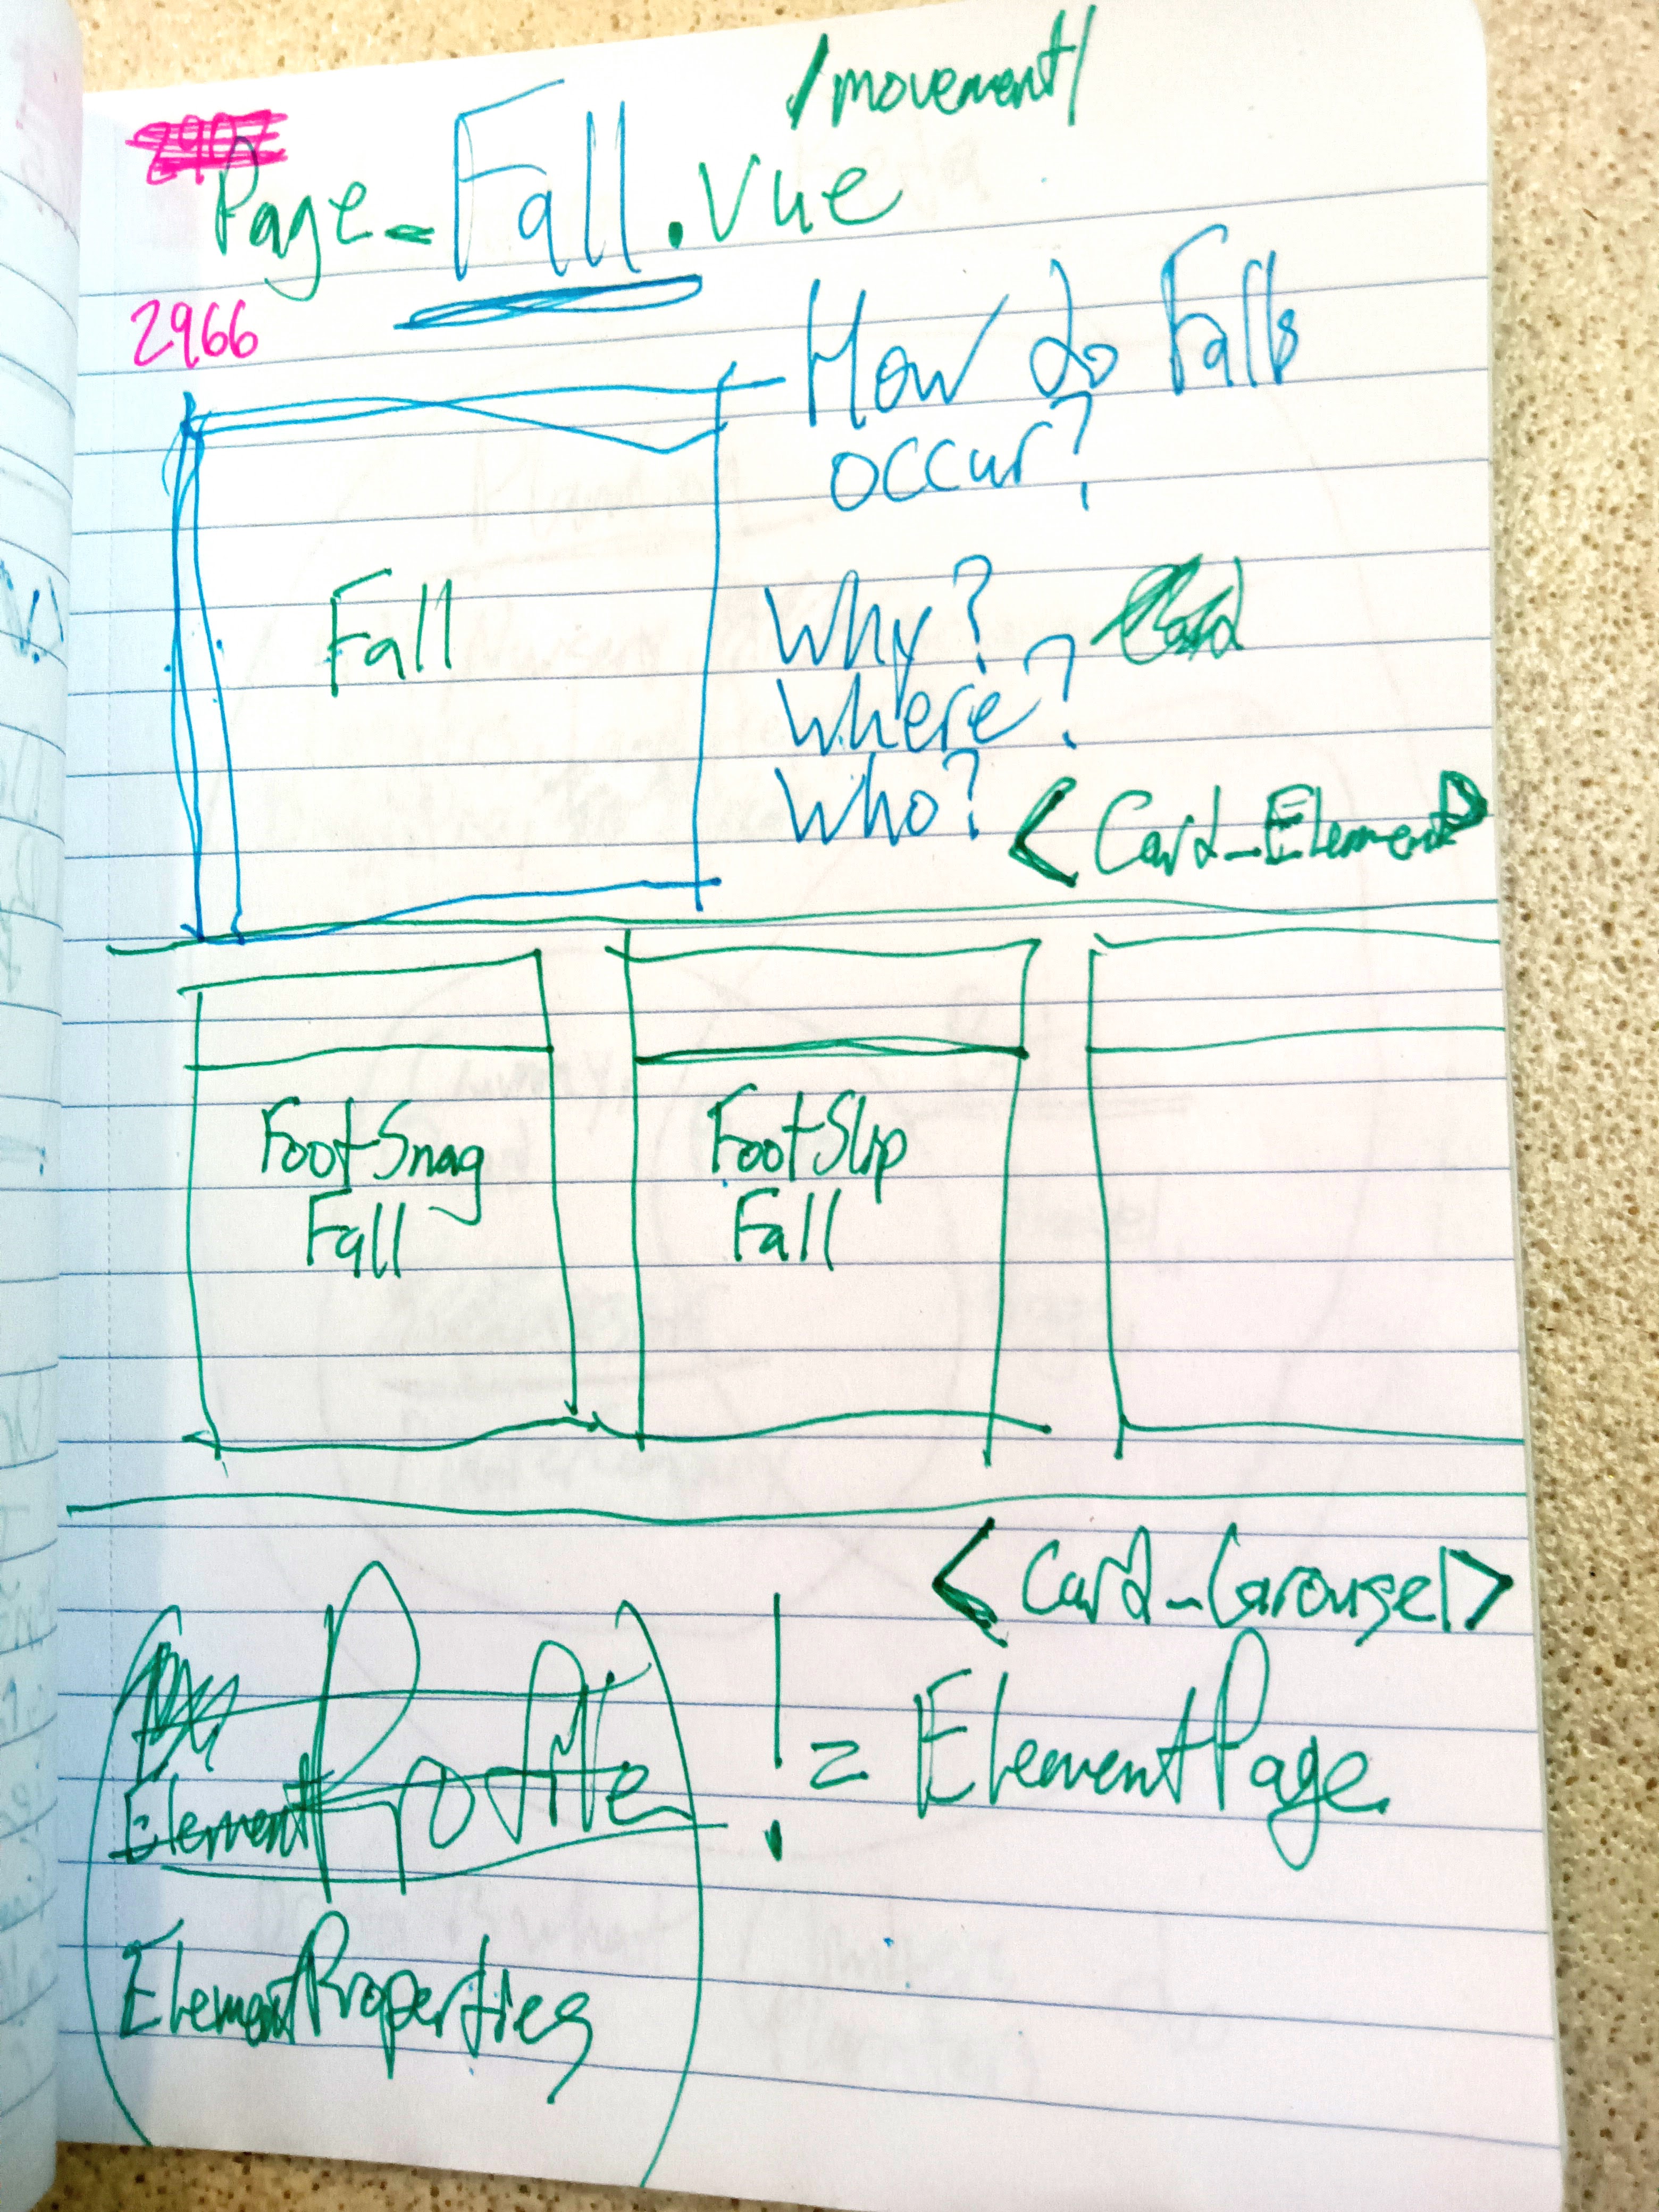 /movement/
Page_Fall.vue
2966
How do Falls
occur?
Fall
Why?
Where?
Who?
<Card_Element>
FootSnag
Fall
FootSlip
Fall
<Card_Carousel>
ElementProfile != ElementPage
ElementProperties